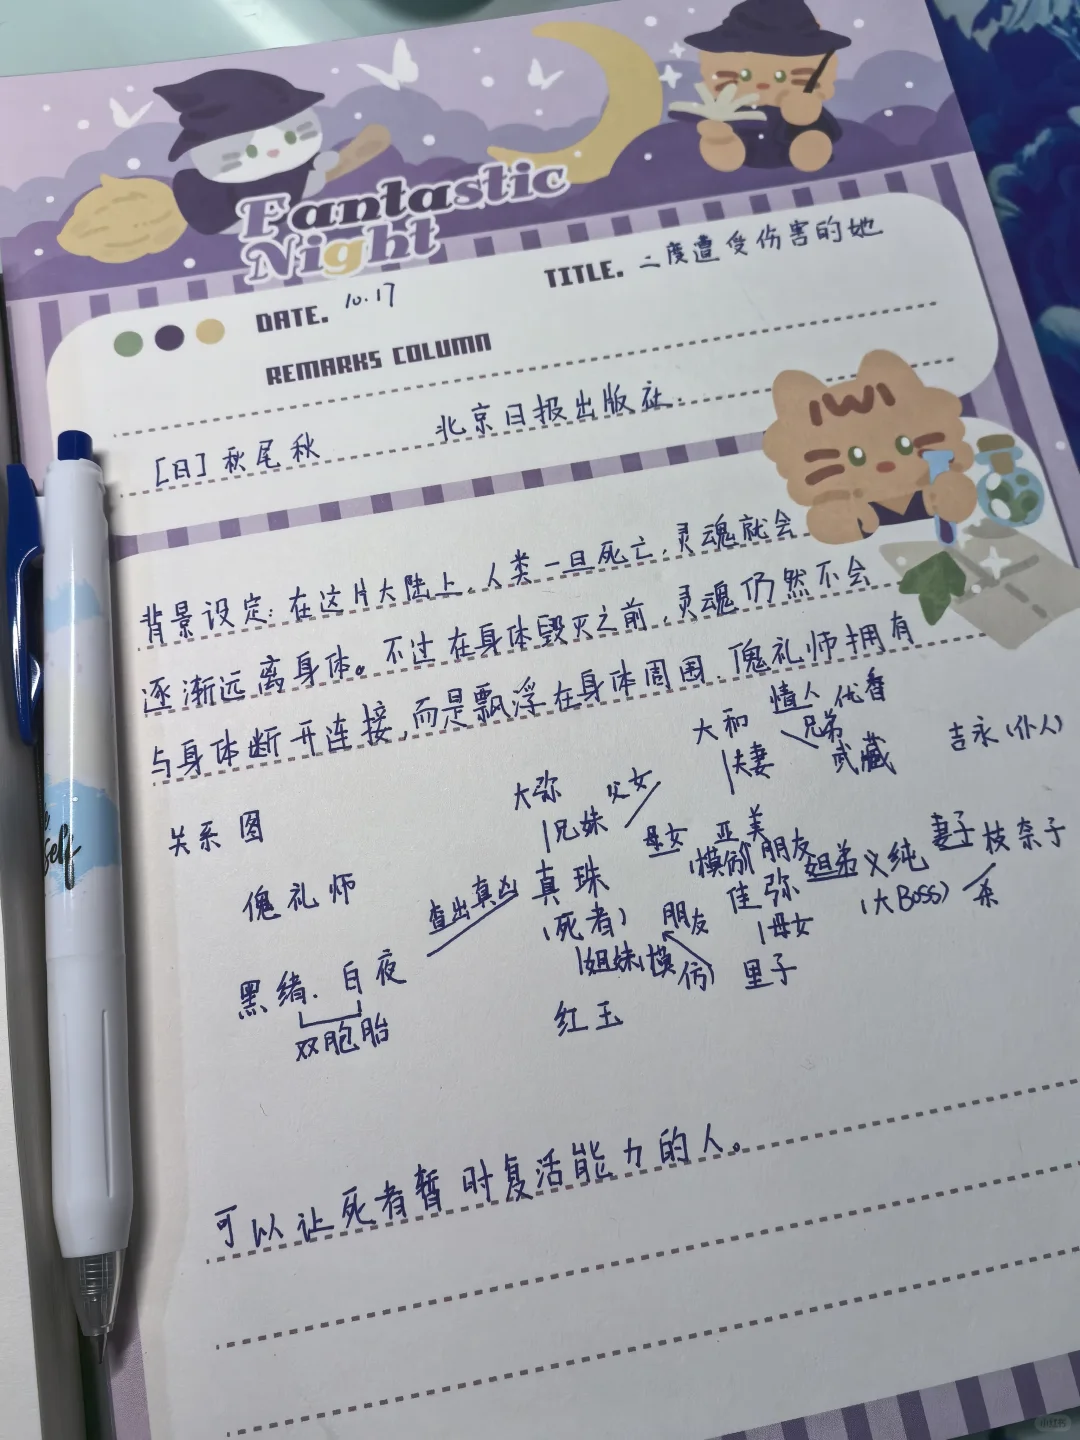 Fantastic
Night
DATE. 10.17
TITLE. 二度遭受伤害的她
REMARKS COLUMN
[日]秋尾秋 北京日报出版社.
背景设定:在这片大陆上,人类一旦死亡,灵魂就会
逐渐远离身体。不过在身体毁灭之前,灵魂仍然不会
与身体断开连接,而是飘浮在身体周围.傀礼师拥有
关系图
大和 情人 优香
夫妻 兄弟 武藏 吉永(仆人)
大弥 父女
兄妹 母女 亚美
(模仿) 朋友 姐弟 义纯 妻子 枝奈子
傀礼师 查出真凶 真珠 佳弥 (大Boss) 杀
(死者) 朋友 母女
黑绪.白夜 姐妹(模仿) 里子
双胞胎 红玉
可以让死者暂时复活能力的人。
self
小红书